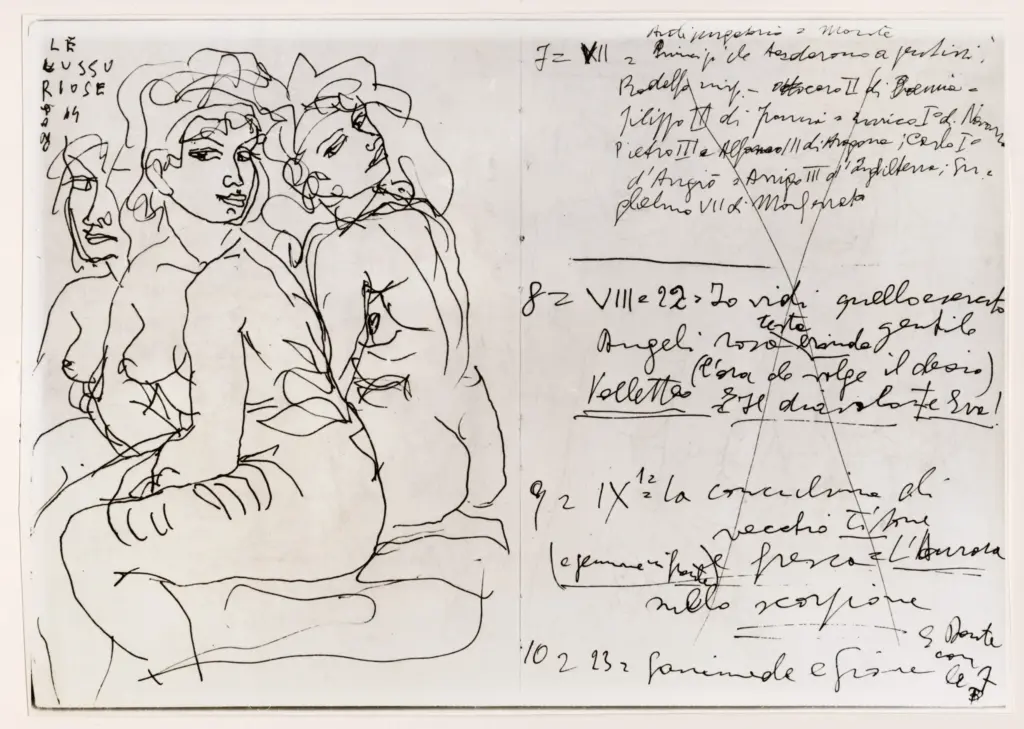 LE
LUSSU
RIOSE
Antipurgatorio = Monte
7 = VII = Principi che tardarono a pentirsi,
Rodolfo imp. - Ottocaro II di Boemia =
Filippo III di Francia = Enrico I° d. Navarra
Pietro III e Alfonso III di Aragona; Carlo I°
d'Angiò = Arrigo III d'Inghilterra; Gu=
glielmo VII di Monferrato
8 = VIII = 22 = Io vidi quello esercito
gentile
testa
Angeli bionda
Valletta (l'ora che volge il desio)
E Il diavolo è Eva!
9 = IX 12 = La concubina di
vecchio Titone
(e gemme in fronte) e fresca = L'Aurora
nello scorpione
10 = 23 = Ganimede e Giove
Dante
con
le 7